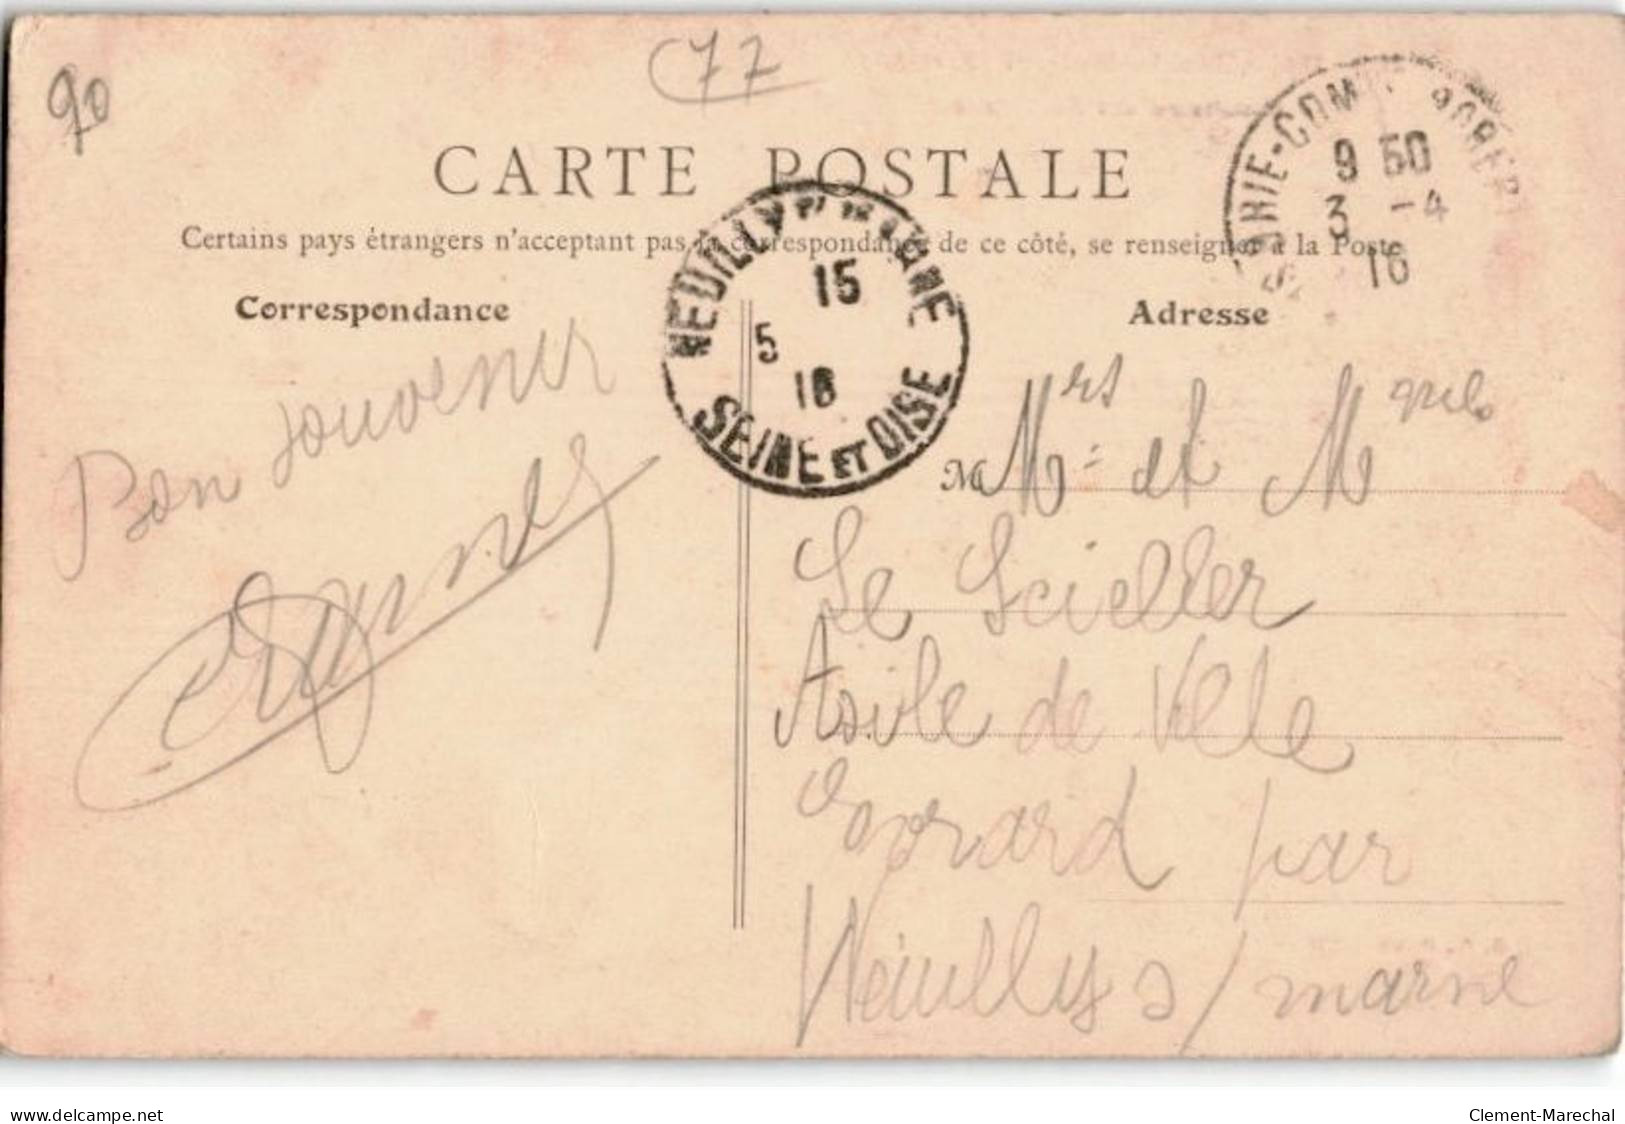 90
77
CARTE POSTALE
Certains pays étrangers n'acceptant pas la correspondance de ce côté, se renseigner à la Poste
BRIE-COMTE-ROBERT
9 50
3 -4
16
NEUILLY S/ MARNE
15
5
16
SEINE ET OISE
Correspondance
Adresse
Bon souvenir
M Mrs Mr et M
Le Scieller
Asile de Ville
Evrard par
Neuilly s/ marne
www.delcampe.net
Clement-Marechal